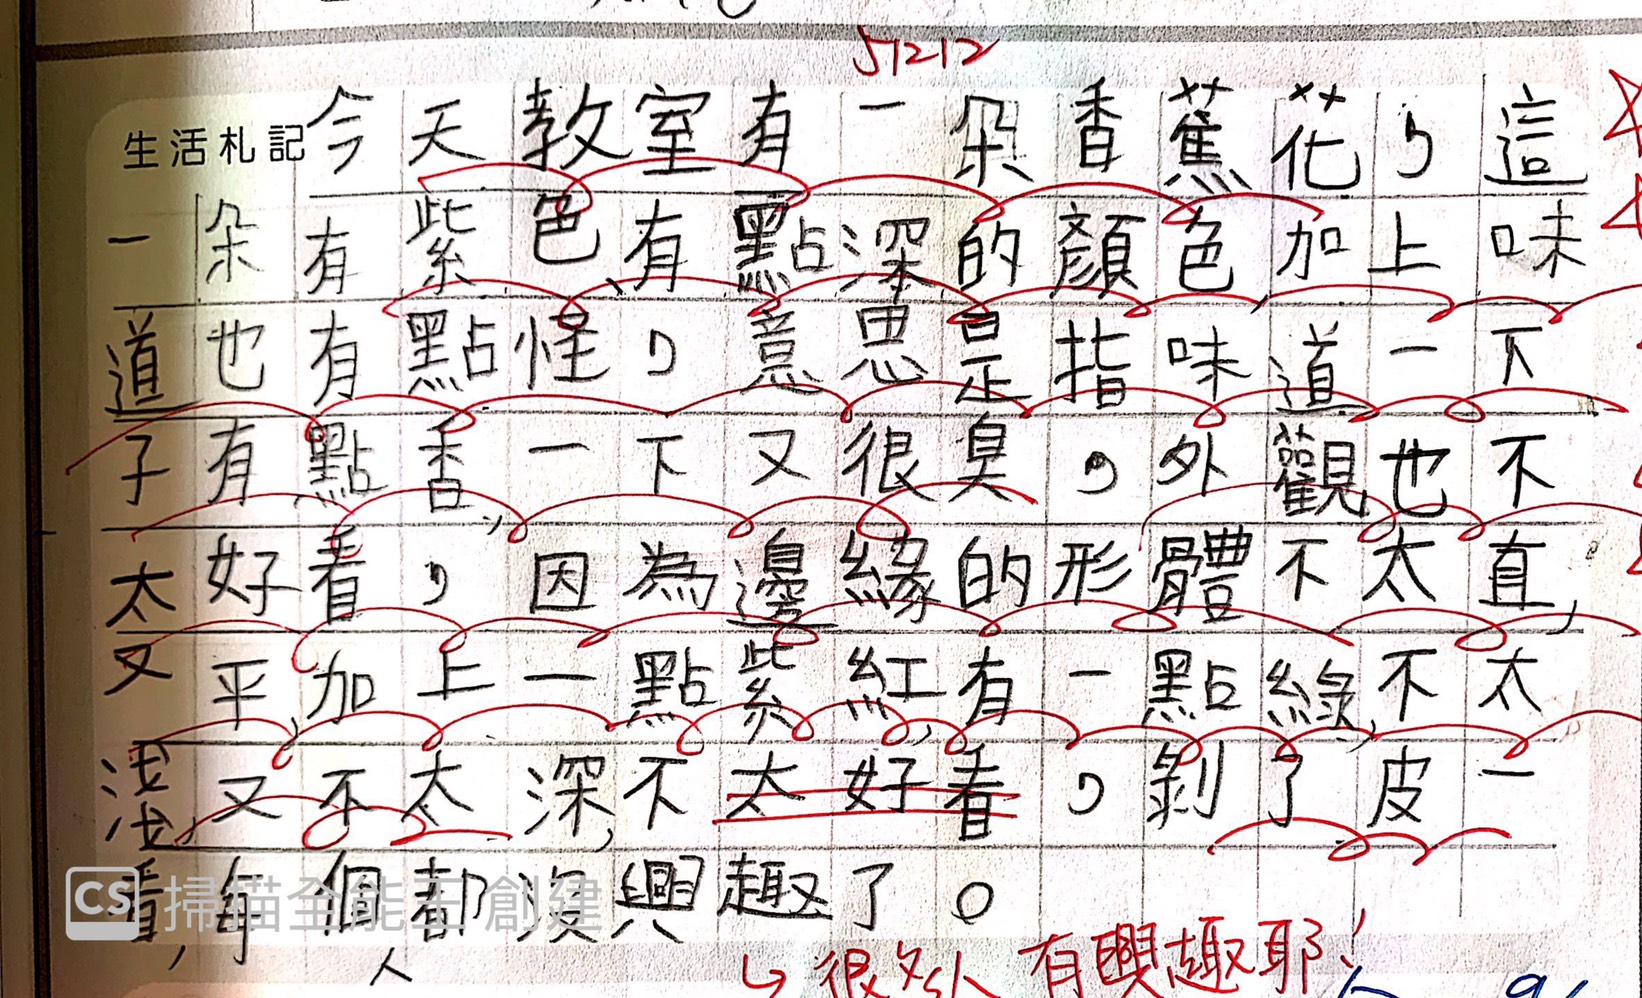 51212
生活札記今天教室有一朵香蕉花，這
一朵有紫色、有點深的顏色加上味
道也有點怪，意思是指味道一下
子有點香，一下又很臭，外觀也不
太好看，因為邊緣的形體不太直，
又平，加上一點紫紅，有一點綠，不太
淺，又不太深，不太好看，剝了皮一
看，每個人都沒興趣了。
CS 掃描全能王 創建
很多人有興趣耶！